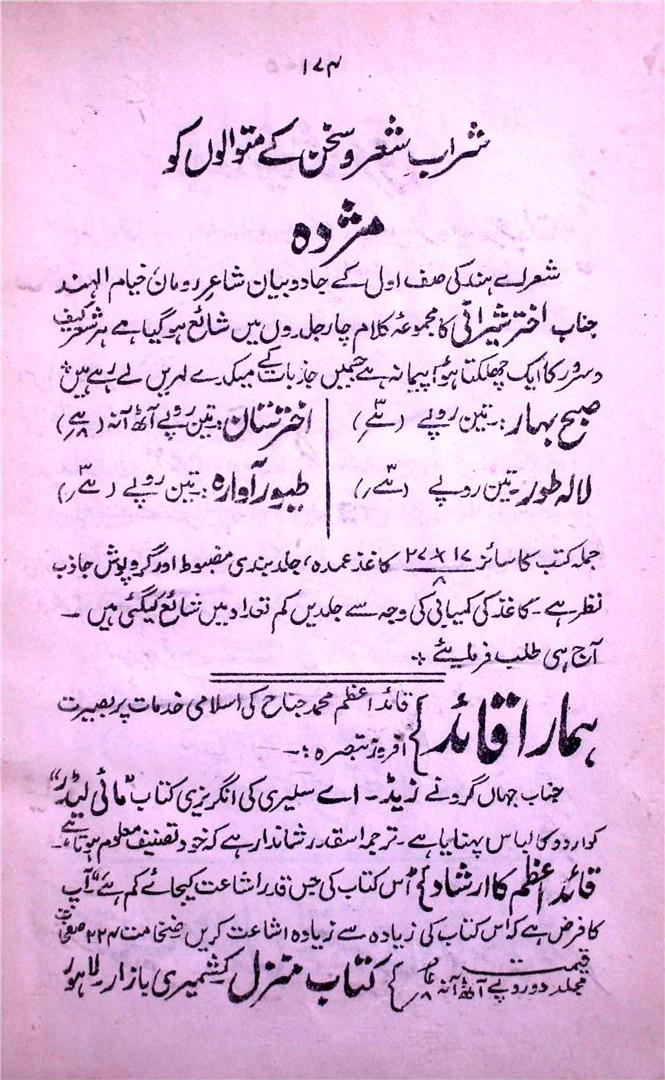 ۱۷۴
شرابِ شعر و سخن کے متوالوں کو
مژدہ
شعرائے ہند کی صف اول کے جادو بیان شاعر رومان خیام الہند
جناب اختر شیرانی کا مجموعۂ کلام چار جلدوں میں شائع ہوگیا ہے ہر شعر کیف
و سرور کا ایک چھلکتا ہوا پیمانہ ہے جسمیں جذبات کے میکدے لہریں لے رہے ہیں
صبح بہار :۔ تین روپے
اخترستان :۔ تین روپے آٹھ آنہ
لالہ طور ۔ تین روپے
طیور آوارہ :۔ تین روپے
جملہ کتب کا سائز ۲۷×۱۷/۸ کاغذ عمدہ، جلد بندی مضبوط اور گرد پوش جاذب
نظر ہے ۔ کاغذ کی کمیابی کی وجہ سے جلدیں کم تعداد میں شائع کیگئی ہیں ۔
آج ہی طلب فرمایئے
ہمارا قائد } قائد اعظم محمد جناح کی اسلامی خدمات پر بصیرت
افروز تبصرہ :۔
جناب جہاں گرد نے زیڈ ۔ اے سلیری کی انگریزی کتاب "مائی لیڈر"
کو اردو کا لباس پہنایا ہے ۔ ترجمہ اسقدر شاندار ہے کہ خود تصنیف معلوم ہوتا ہے ۔
قائد اعظم کا ارشاد } "اس کتاب کی جس قدر اشاعت کیجائے کم ہے" آپ
کا فرض ہے کہ اس کتاب کی زیادہ سے زیادہ اشاعت کریں ضخامت ۲۲۴ صفحات
قیمت مجلد دو روپے آٹھ آنہ } کتاب منزل کشمیری بازار لاہور